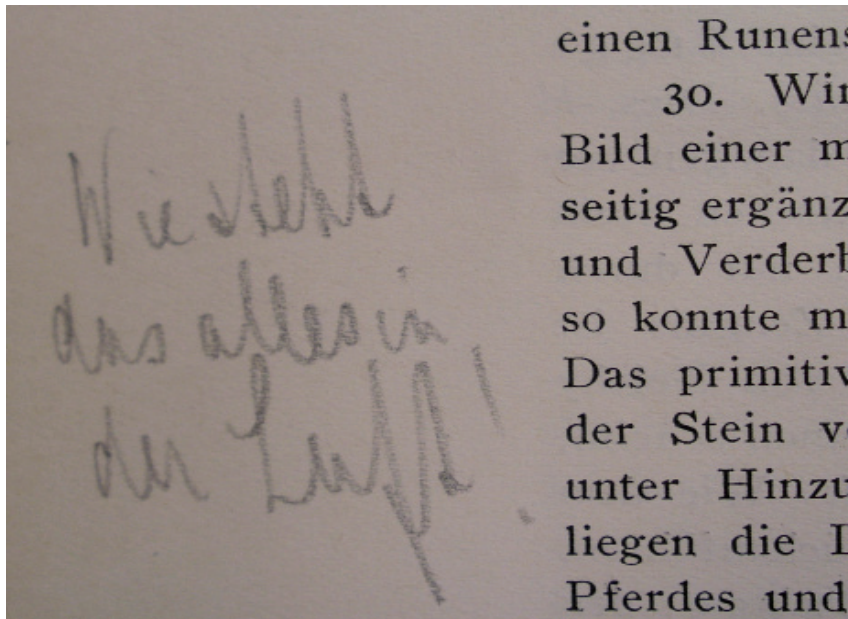 Wie steht
das alles in
der Luft!
einen Runens
30. Wir
Bild einer m
seitig ergänz
und Verderb
so konnte m
Das primitiv
der Stein v
unter Hinzu
liegen die
Pferdes und